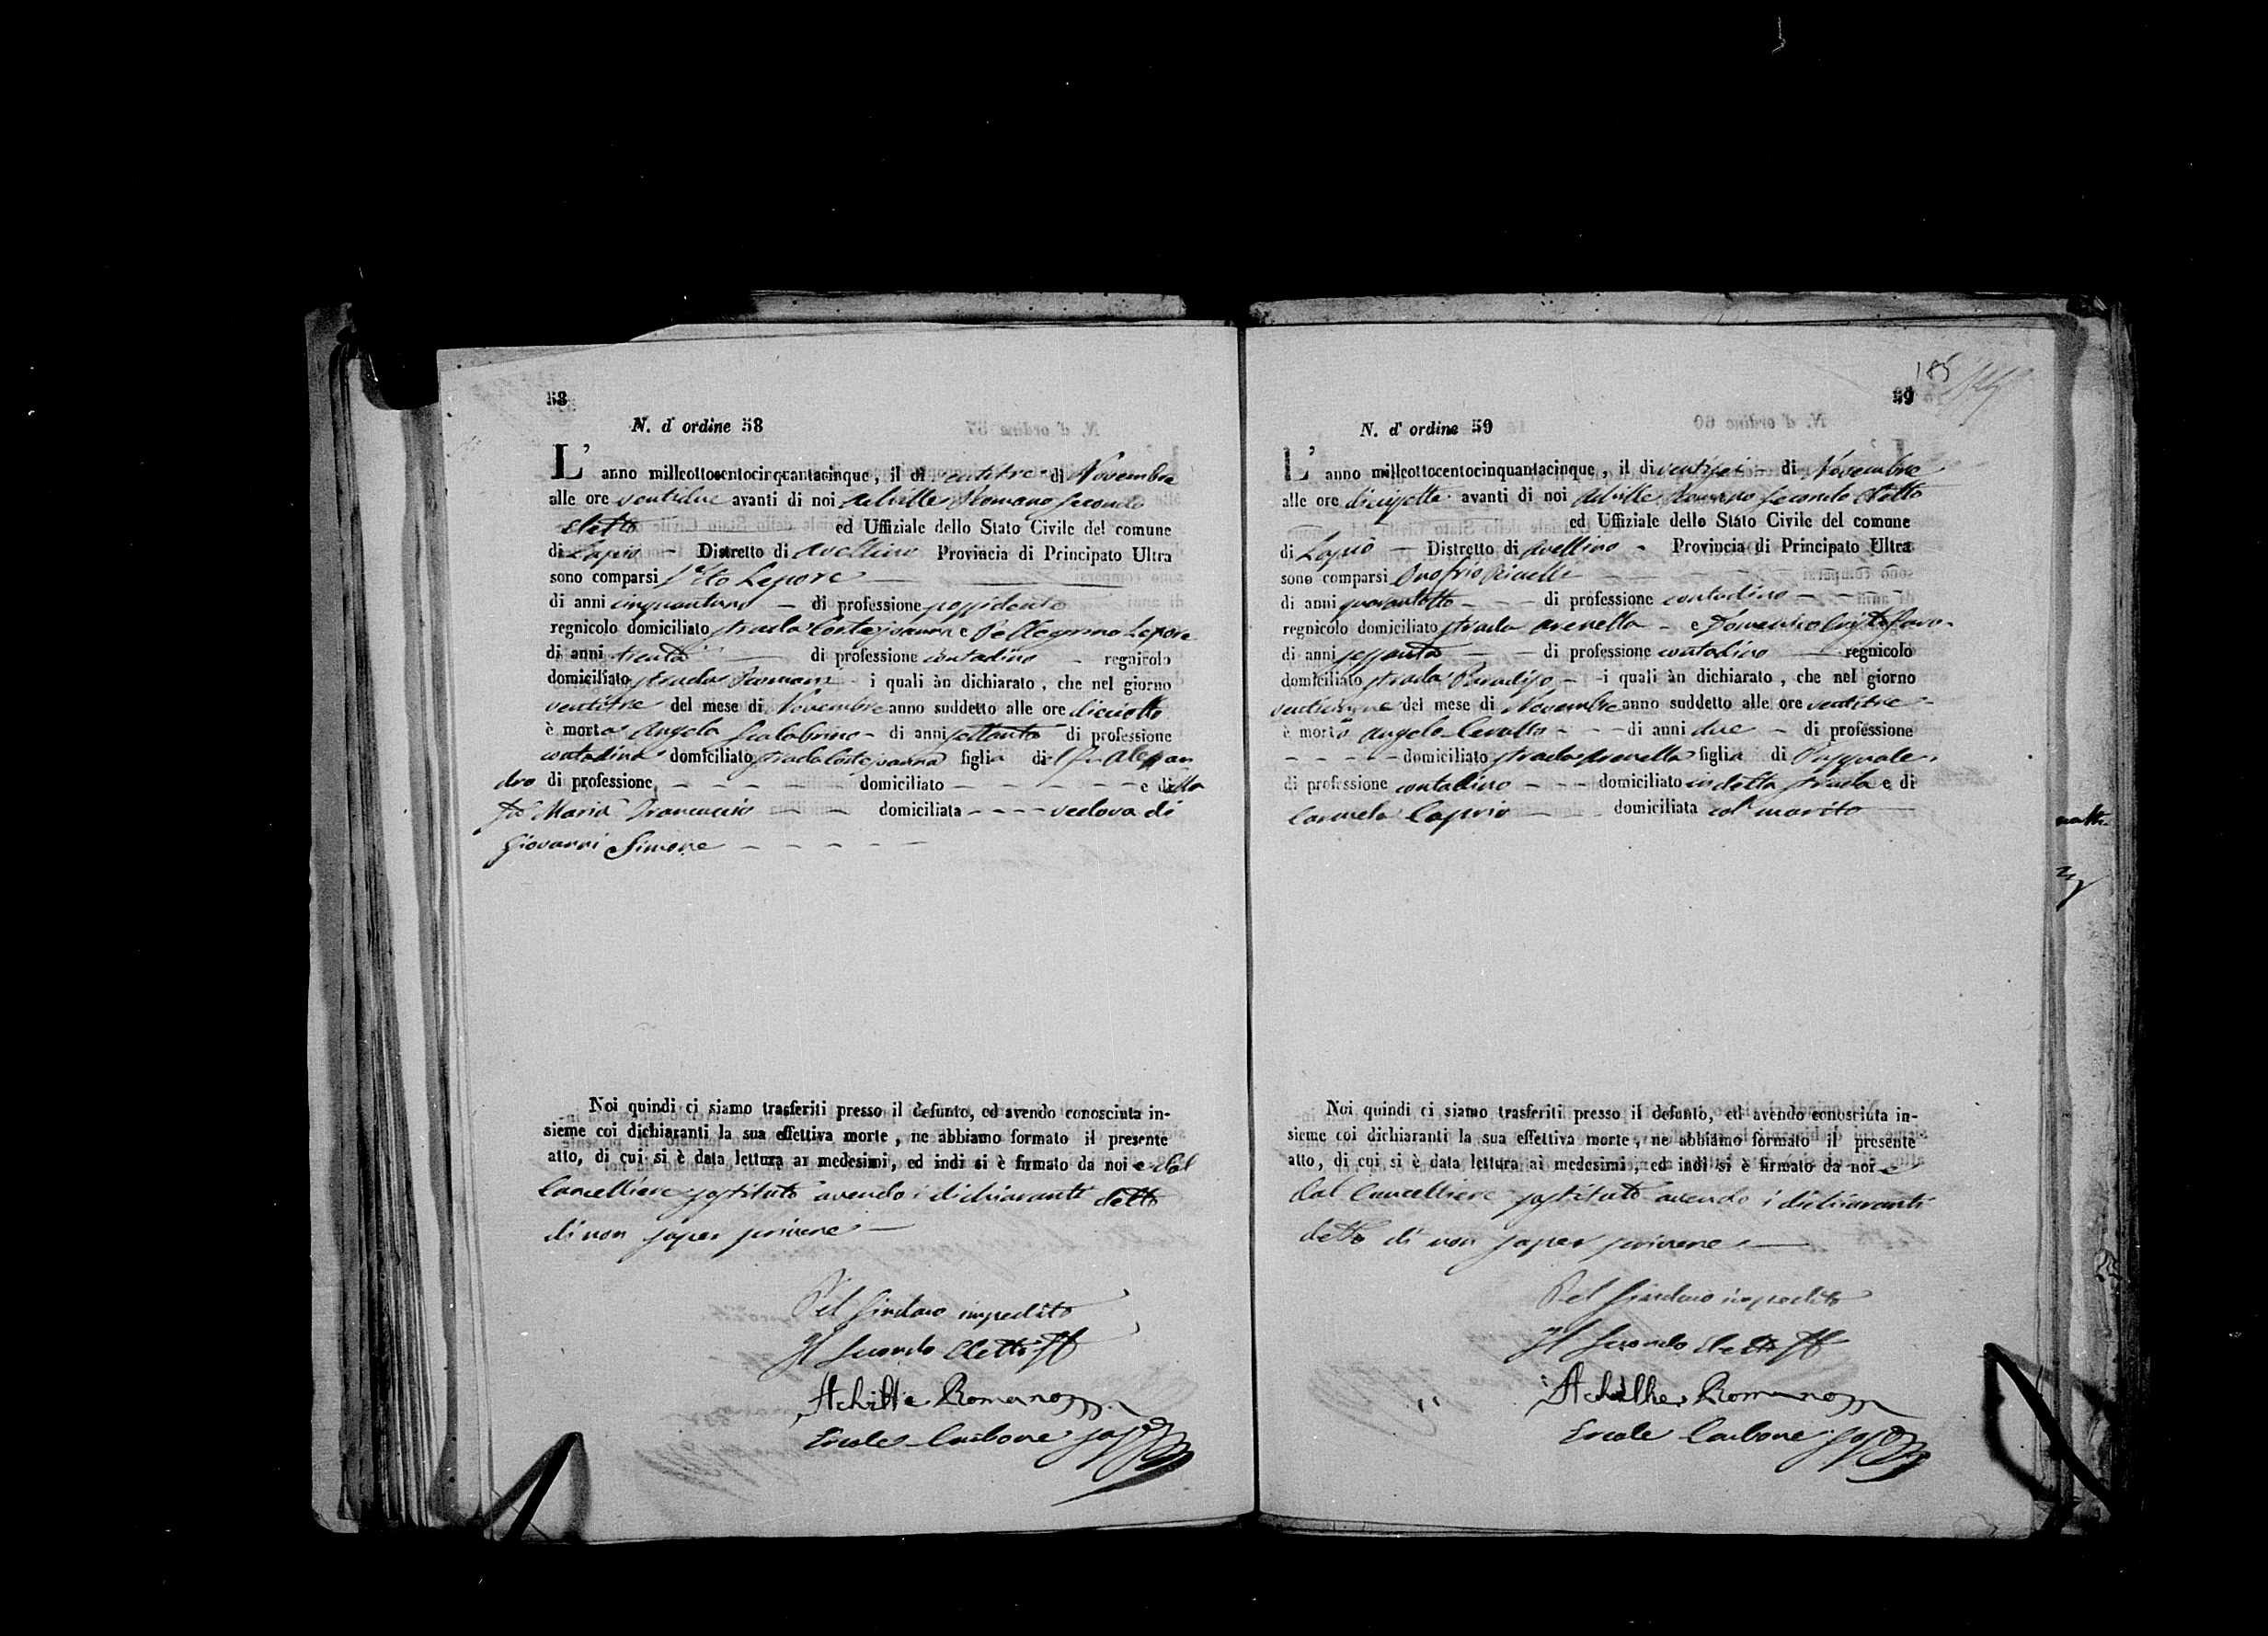 58
N. d' ordine 58
L' anno millcottocentocinquantacinque, il dì ventitre di Novembre
alle ore ventidue avanti di noi Achille Romano Secondo
Eletto ed Uffiziale dello Stato Civile del comune
di Lapio - Distretto di Avellino Provincia di Principato Ultra
sono comparsi Vito Lepore
di anni cinquantuno - di professione possidente
regnicolo domiciliato strada Cortejoanna e Pellegrino Lepore
di anni trenta - di professione contadino - regnicolo
domiciliato strada Romani - i quali àn dichiarato, che nel giorno
ventitre del mese di Novembre anno suddetto alle ore diciotto
è morta Angela Scalabrino - di anni settanta di professione
contadina domiciliato strada Cortejoanna figlia del fu Alessan
dro di professione - - - - domiciliato - - - - - e della
fu Maria Trancuccio - - domiciliata - - - - vedova di
Giovanni Simone - - - - -
Noi quindi ci siamo trasferiti presso il defunto, ed avendo conosciuta in-
sieme coi dichiaranti la sua effettiva morte, ne abbiamo formato il presente
atto, di cui si è data lettura ai medesimi, ed indi si è firmato da noi e dal
Cancelliere sostituto avendo i dichiaranti detto
di non saper scrivere
Pel Sindaco impedito
Il Secondo Eletto
Achille Romano
Ercole Carbone
185
59
N. d' ordine 59
L' anno millcottocentocinquantacinque, il dì ventisei - di Novembre
alle ore dicisette avanti di noi Achille Romano Secondo Eletto
ed Uffiziale dello Stato Civile del comune
di Lapio - Distretto di Avellino - Provincia di Principato Ultra
sono comparsi Onofrio
di anni quarantotto - - - di professione contadino - - - -
regnicolo domiciliato strada Arenella - e Domenico Cristofaro -
di anni sessanta - - di professione contadino - regnicolo
domiciliato strada Paradiso - - i quali àn dichiarato, che nel giorno
venticinque del mese di Novembre anno suddetto alle ore ventitre -
è morta Angela - - - di anni due - di professione
- - - - - domiciliato strada Arenella figlia di Pasquale
di professione contadino - - - domiciliato in detta strada e di
Carmela Caprio - - - domiciliata col marito
Noi quindi ci siamo trasferiti presso il defunto, ed avendo conosciuta in-
sieme coi dichiaranti la sua effettiva morte, ne abbiamo formato il presente
atto, di cui si è data lettura ai medesimi, ed indi si è firmato da noi e
dal Cancelliere sostituto avendo i dichiaranti
detto di non saper scrivere
Pel Sindaco impedito
Il Secondo Eletto
Achille Romano
Ercole Carbone